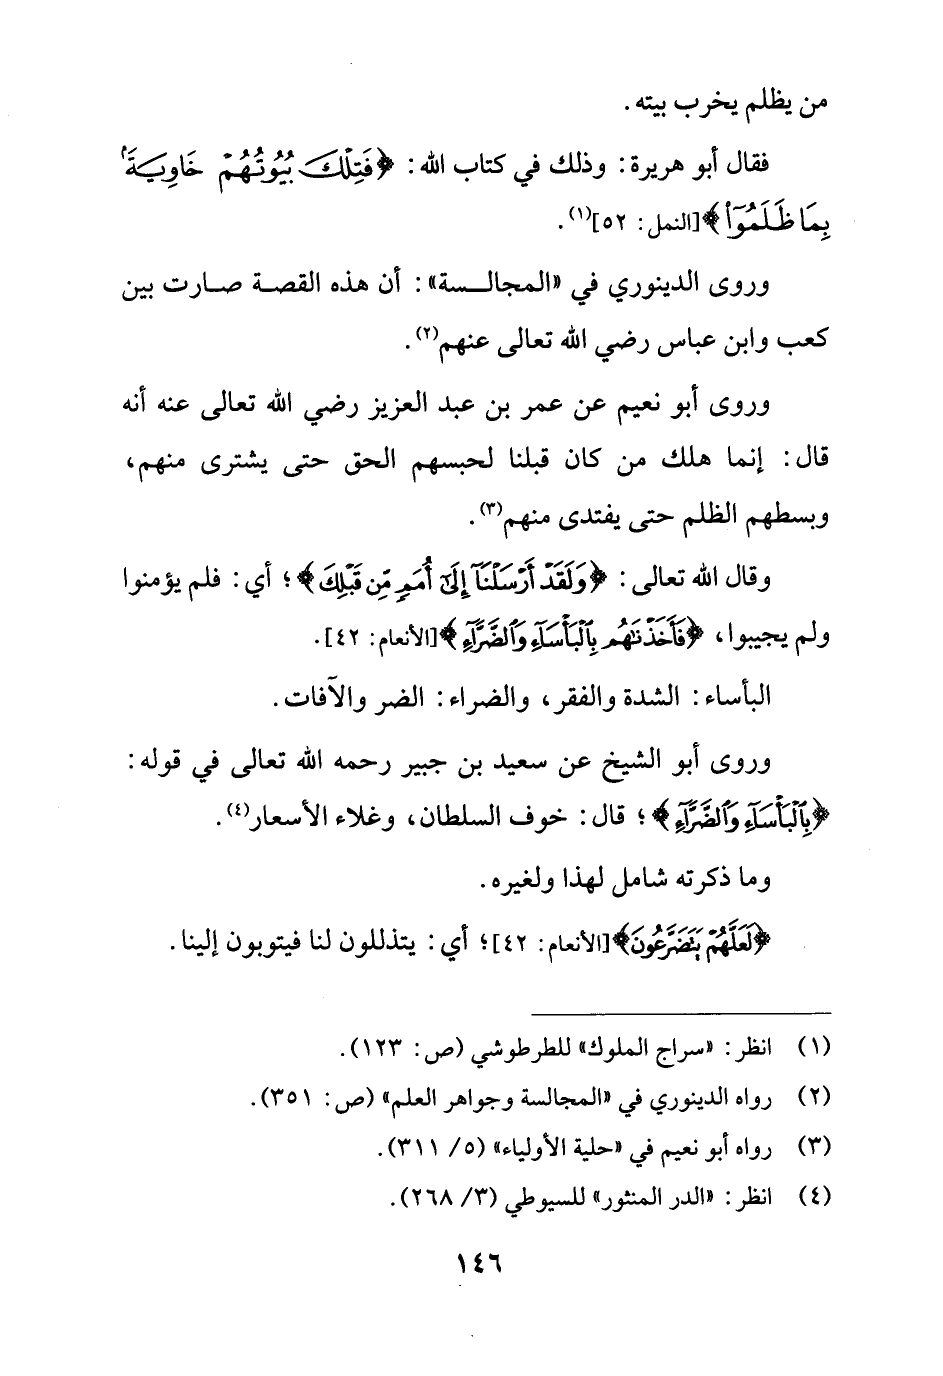 من يظلم يخرب بيته.
فقال أبو هريرة: وذلك في كتاب الله: ﴿فَتِلْكَ بُيُوتُهُمْ خَاوِيَةً
بِمَا ظَلَمُوٓا۟﴾[النمل: ٥٢](١).
وروى الدينوري في «المجالسة»: أن هذه القصة صارت بين
كعب وابن عباس رضي الله تعالى عنهم(٢).
وروى أبو نعيم عن عمر بن عبد العزيز رضي الله تعالى عنه أنه
قال: إنما هلك من كان قبلنا لحبسهم الحق حتى يشترى منهم،
وبسطهم الظلم حتى يفتدى منهم(٣).
وقال الله تعالى: ﴿وَلَقَدْ أَرْسَلْنَآ إِلَىٰٓ أُمَمٍ مِّن قَبْلِكَ﴾؛ أي: فلم يؤمنوا
ولم يجيبوا، ﴿فَأَخَذْنَٰهُم بِٱلْبَأْسَآءِ وَٱلضَّرَّآءِ﴾[الأنعام: ٤٢].
البأساء: الشدة والفقر، والضراء: الضر والآفات.
وروى أبو الشيخ عن سعيد بن جبير رحمه الله تعالى في قوله:
﴿بِٱلْبَأْسَآءِ وَٱلضَّرَّآءِ﴾؛ قال: خوف السلطان، وغلاء الأسعار(٤).
وما ذكرته شامل لهذا ولغيره.
﴿لَعَلَّهُمْ يَتَضَرَّعُونَ﴾[الأنعام: ٤٢]؛ أي: يتذللون لنا فيتوبون إلينا.
(١) انظر: «سراج الملوك» للطرطوشي (ص: ١٢٣).
(٢) رواه الدينوري في «المجالسة وجواهر العلم» (ص: ٣٥١).
(٣) رواه أبو نعيم في «حلية الأولياء» (٥/ ٣١١).
(٤) انظر: «الدر المنثور» للسيوطي (٣/ ٢٦٨).
١٤٦